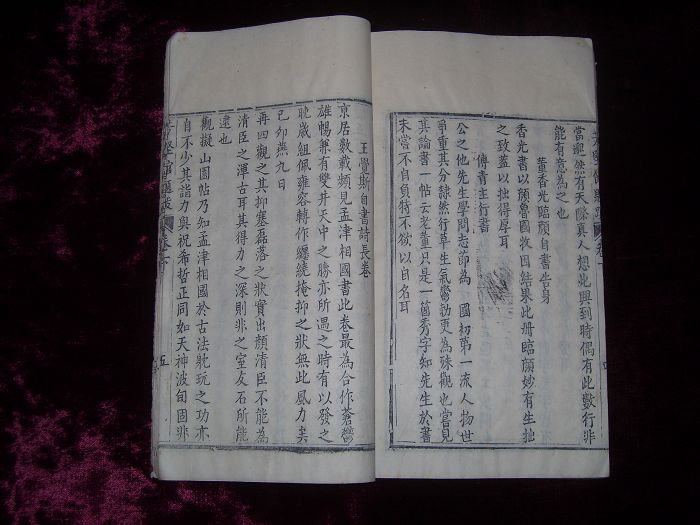 當覿然有天際真人想此興到時偶有此數行非
能有意為之也
董香光臨顏自書告身
香光書以顏魯國收因結果此冊臨顏妙有生拙
之致蓋以拙得厚耳
傅青主行書
公之他先生學問志節為 國初第一流人物世
爭重其分隸然行草生氣鬱勃更為殊觀也嘗見
其論書一帖云老董只是一箇秀字知先生於書
未嘗不自負特不欲以自名耳
王覺斯自書詩長卷
京居數載頻見孟津相國書此卷最為合作蒼鬱
雄暢兼有雙井天中之勝亦所遇之時有以發之
耽歲組佩雍容轉作纏繞掩抑之狀無此風力矣
己卯燕九日
再四觀之其抑塞磊落之狀實出顏清臣不能為
清臣之渾古耳其得力之深則非之室友石所能
逮也
觀擬山園帖乃知孟津相國於古法躭玩之功亦
自不少其詣力與祝希哲正同如天神波旬固非
五